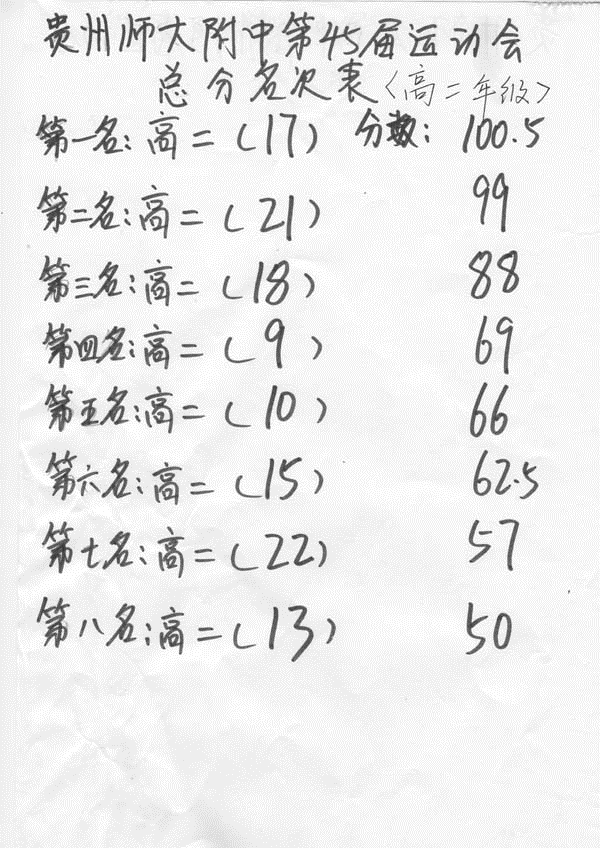 贵州师大附中第45届运动会
总分名次表〈高二年级〉
第一名:高二(17) 分数: 100.5
第二名:高二(21) 99
第三名:高二(18) 88
第四名:高二(9) 69
第五名:高二(10) 66
第六名:高二(15) 62.5
第七名:高二(22) 57
第八名:高二(13) 50